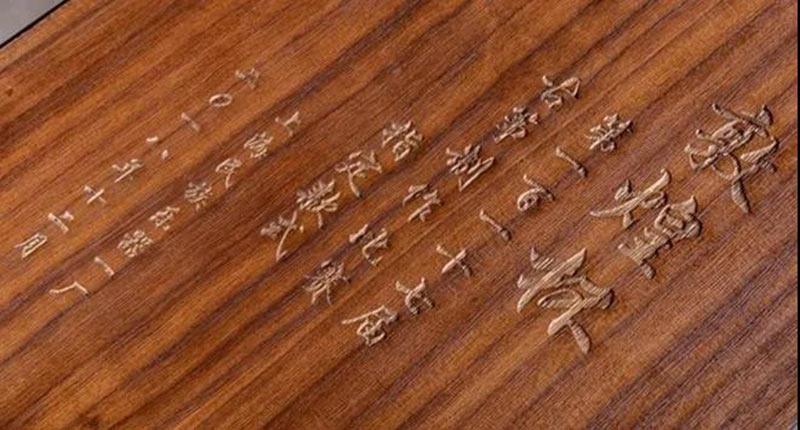 敦煌杯
第一百一十七届
古筝制作比赛
指定款式
上海民族乐器一厂
二〇一八年十二月